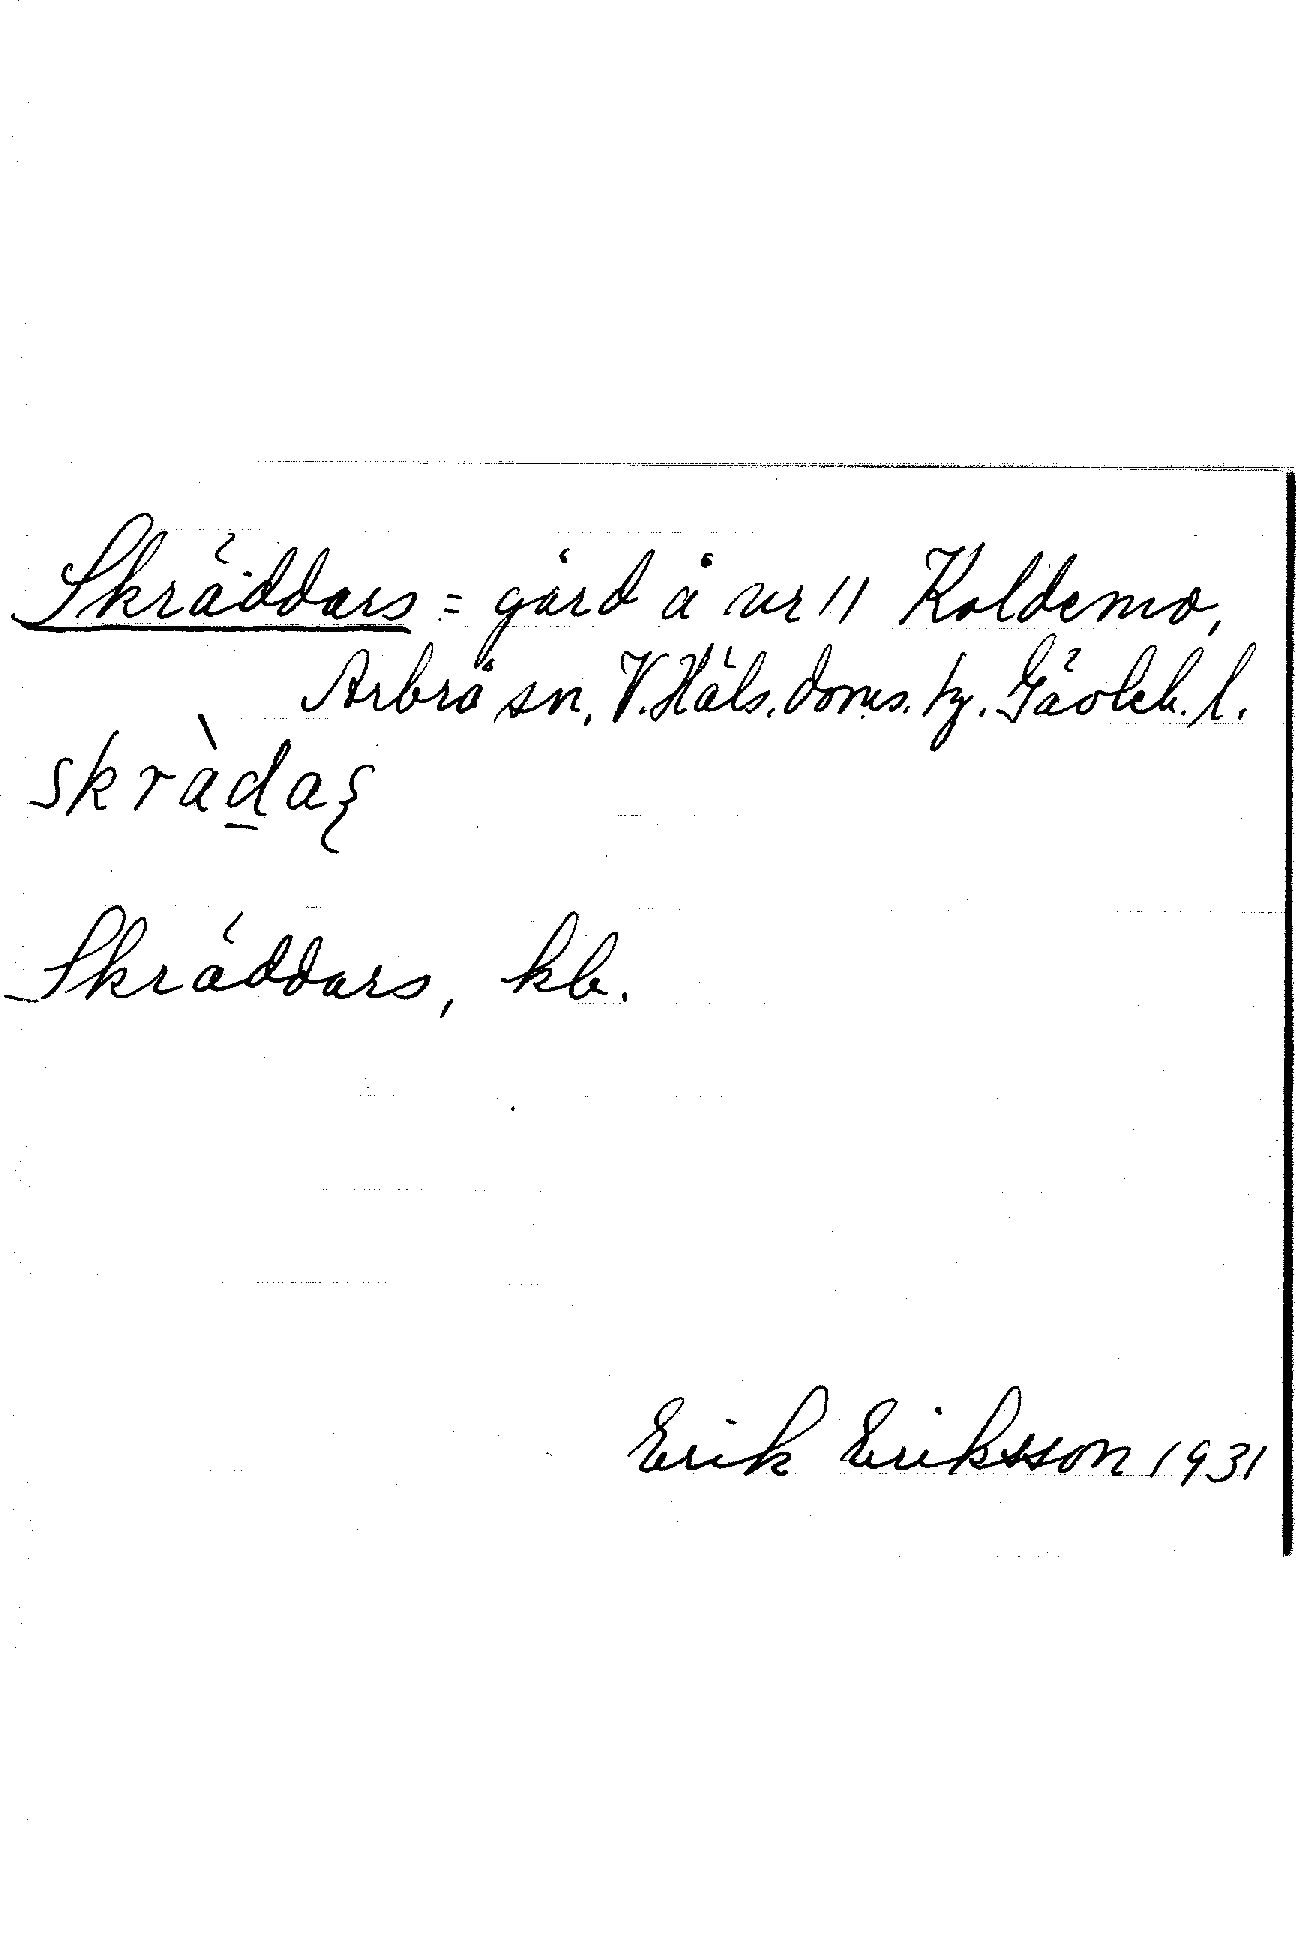 Skräddars = gård å nr 11 Koldemo,
Arbrå sn, V. Häls. doms. hg. Gävleb. l.
skràd̲aʂ
Skräddars, kb.
Erik Eriksson 1931